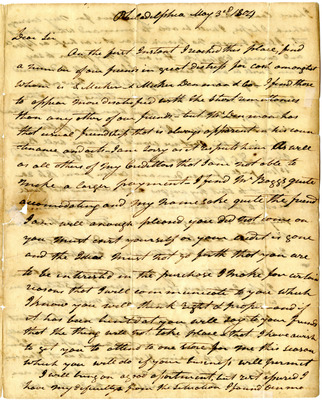 Philadelphia May 3d 1829
Dear Sir
On the first Instant I reached this place, find
a number of our friends in great distress for cash amongst
whom is & Meeker Denman & Co. I find those
to appear more dissatisfied with the short remittances
than any other of our friends, but Mr Denman has
that usual friendship that is always apparent in his coun
tinance and acts. I am sorry and I regret him As well
as all others of my Creditors that I am not able to
make a larger payment. I find Mr Boggs quite
accomodating and my namesake quite the friend
I am well enough pleased you did not come on
you must exert yourself or your credit is gone
and the Idea must not go forth that you are
to be interested in the purchase I make for certain
reasons that I will communicate to you which
I know you will think right & proper and if
it has been hinted at you will say to your friends
that the thing will not take place, that I have a wish
to get you to attend to one store for me this season
which you will do if your business will permit
I will bring on a good assortment, but
have my difficulty from the situation I found on me